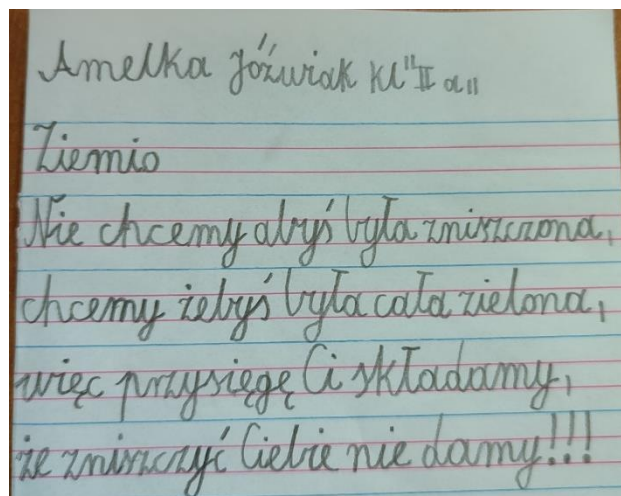 Amelka Jóźwiak kl "II a"
Ziemio
Nie chcemy abyś była zniszczona,
chcemy żebyś była cała zielona,
więc przysięgę Ci składamy,
że zniszczyć Ciebie nie damy!!!